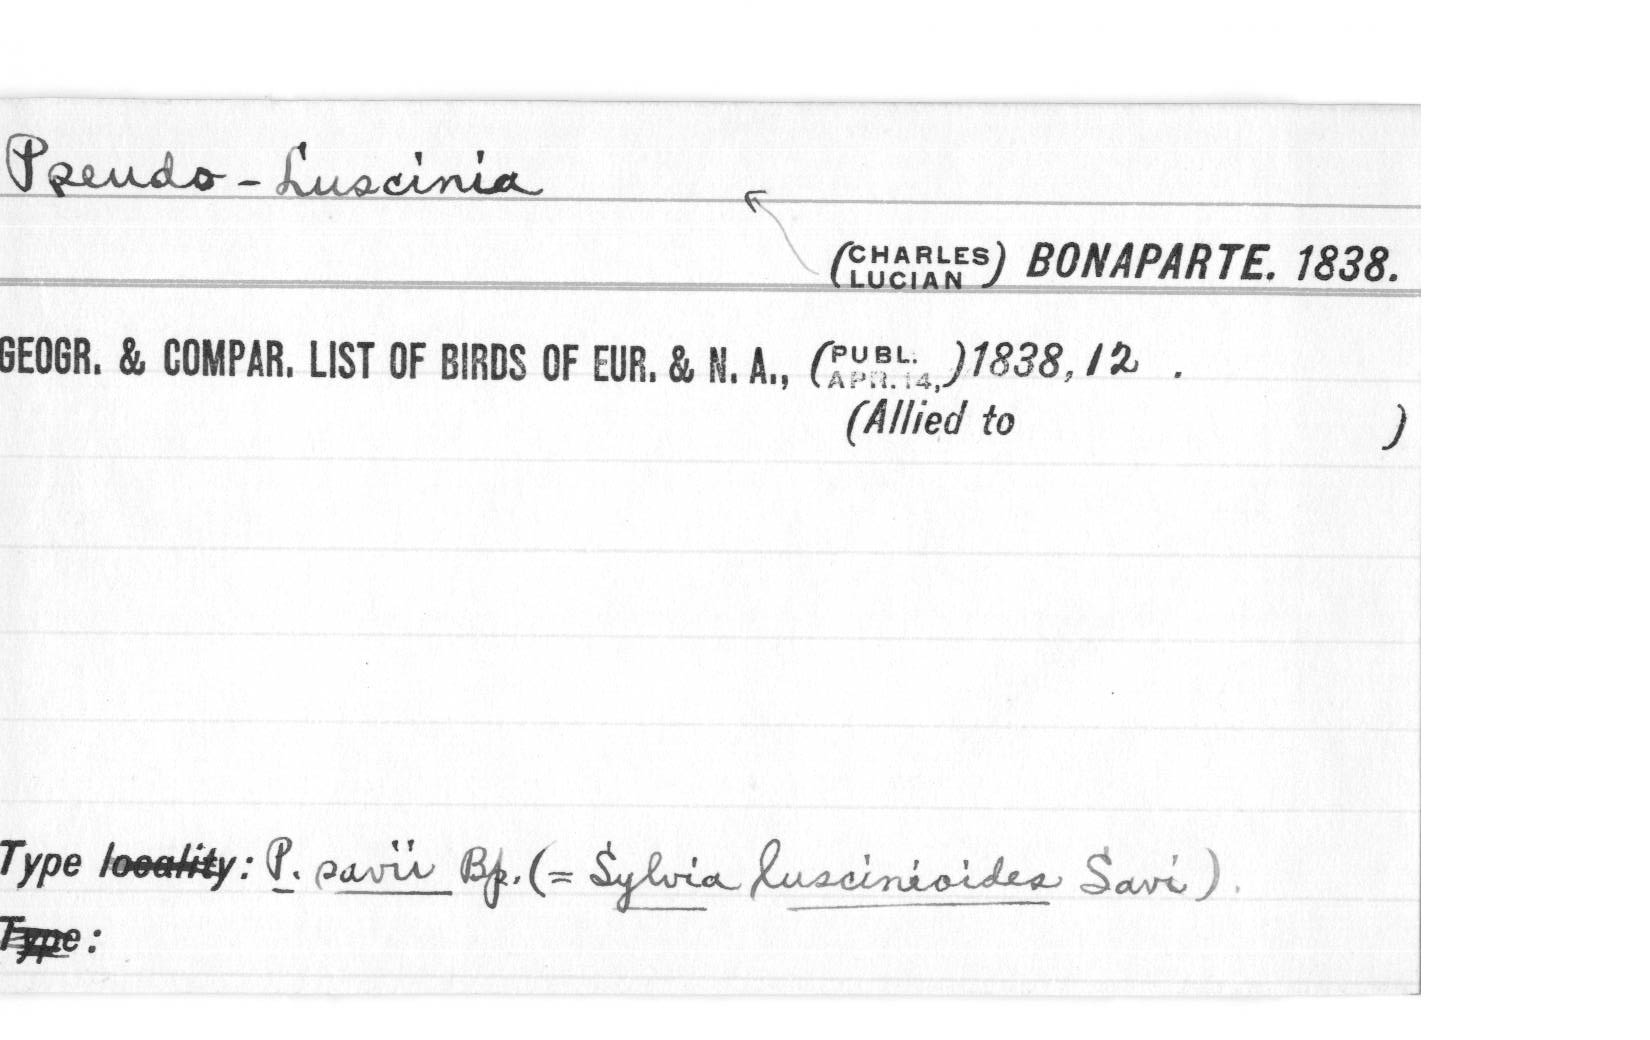 Pseudo-Luscinia
(CHARLES LUCIAN) BONAPARTE. 1838.
GEOGR. & COMPAR. LIST OF BIRDS OF EUR. & N. A., (PUBL. APR. 14,) 1838, 12 .
(Allied to )
Type locality: P. savii Bp. (= Sylvia luscinioides Savi).
Type: